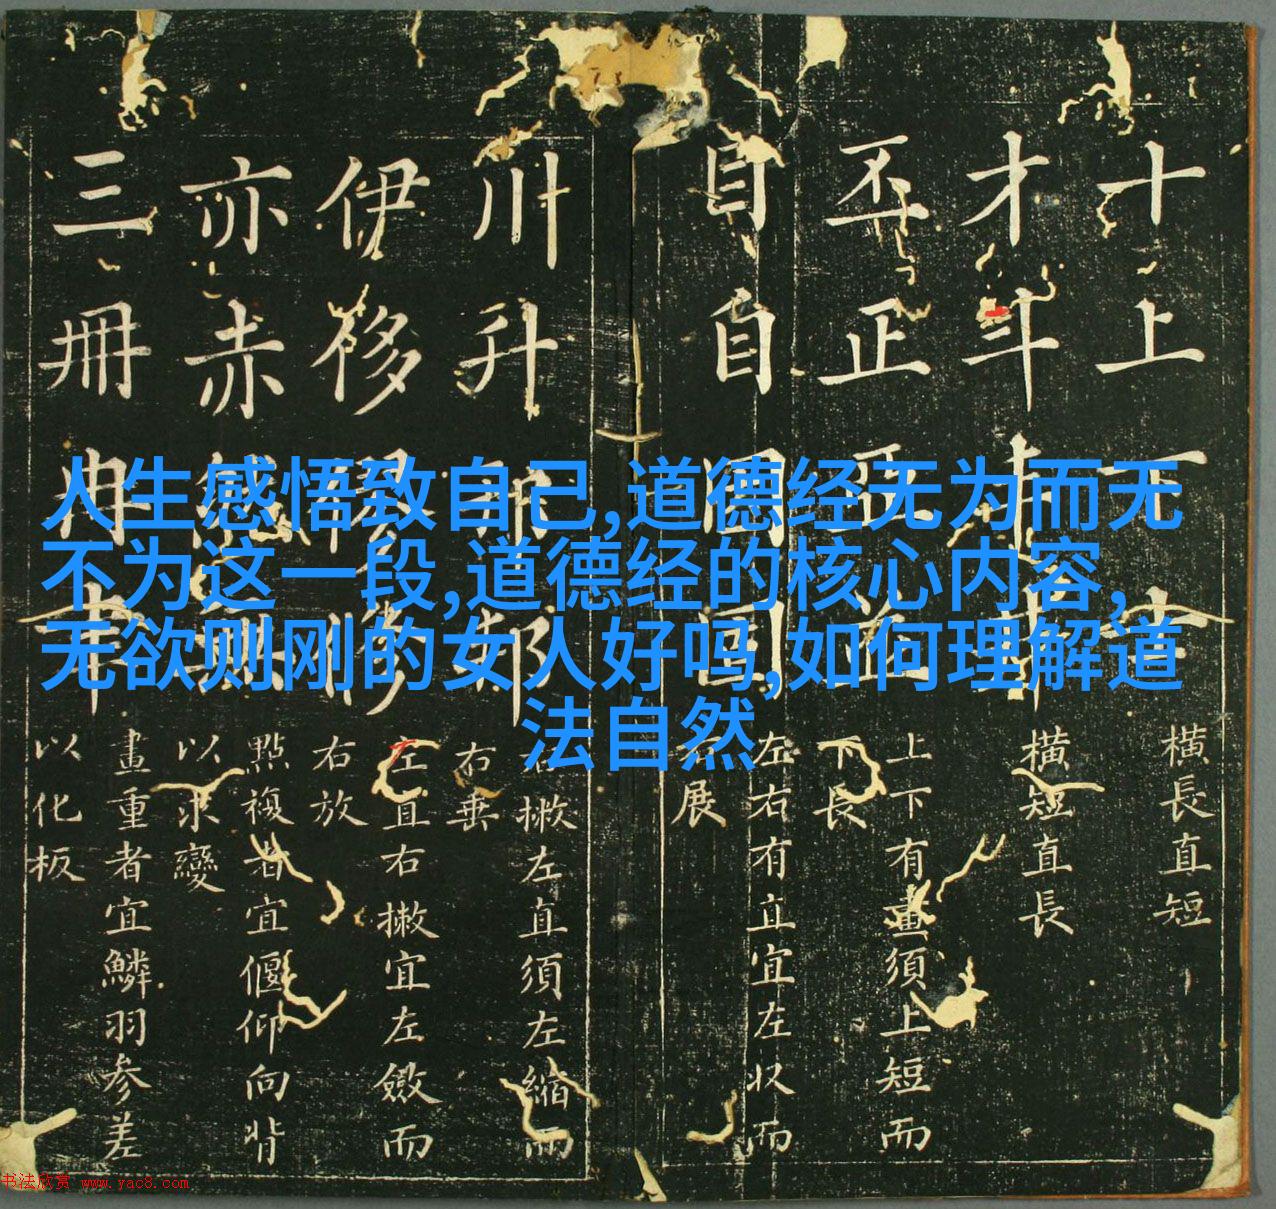 人生感悟致自己,道德经无为而无
不为这一段,道德经的核心内容,
无欲则刚的女人好吗,如何理解道
法自然
十上下
橫長直短
才斗
橫短直長
丕正
上下有畫須上短而
下長
目自
左右有直宜左收而
右展
川升
右撇左直須左縮而
右垂
伊侈
左直右撇宜左斂而
右放
亦赤
點複者宜偃仰向背
以求變
三冊冉
畫重者宜鱗羽參差
以化板
书法欣赏 www.yac8.com